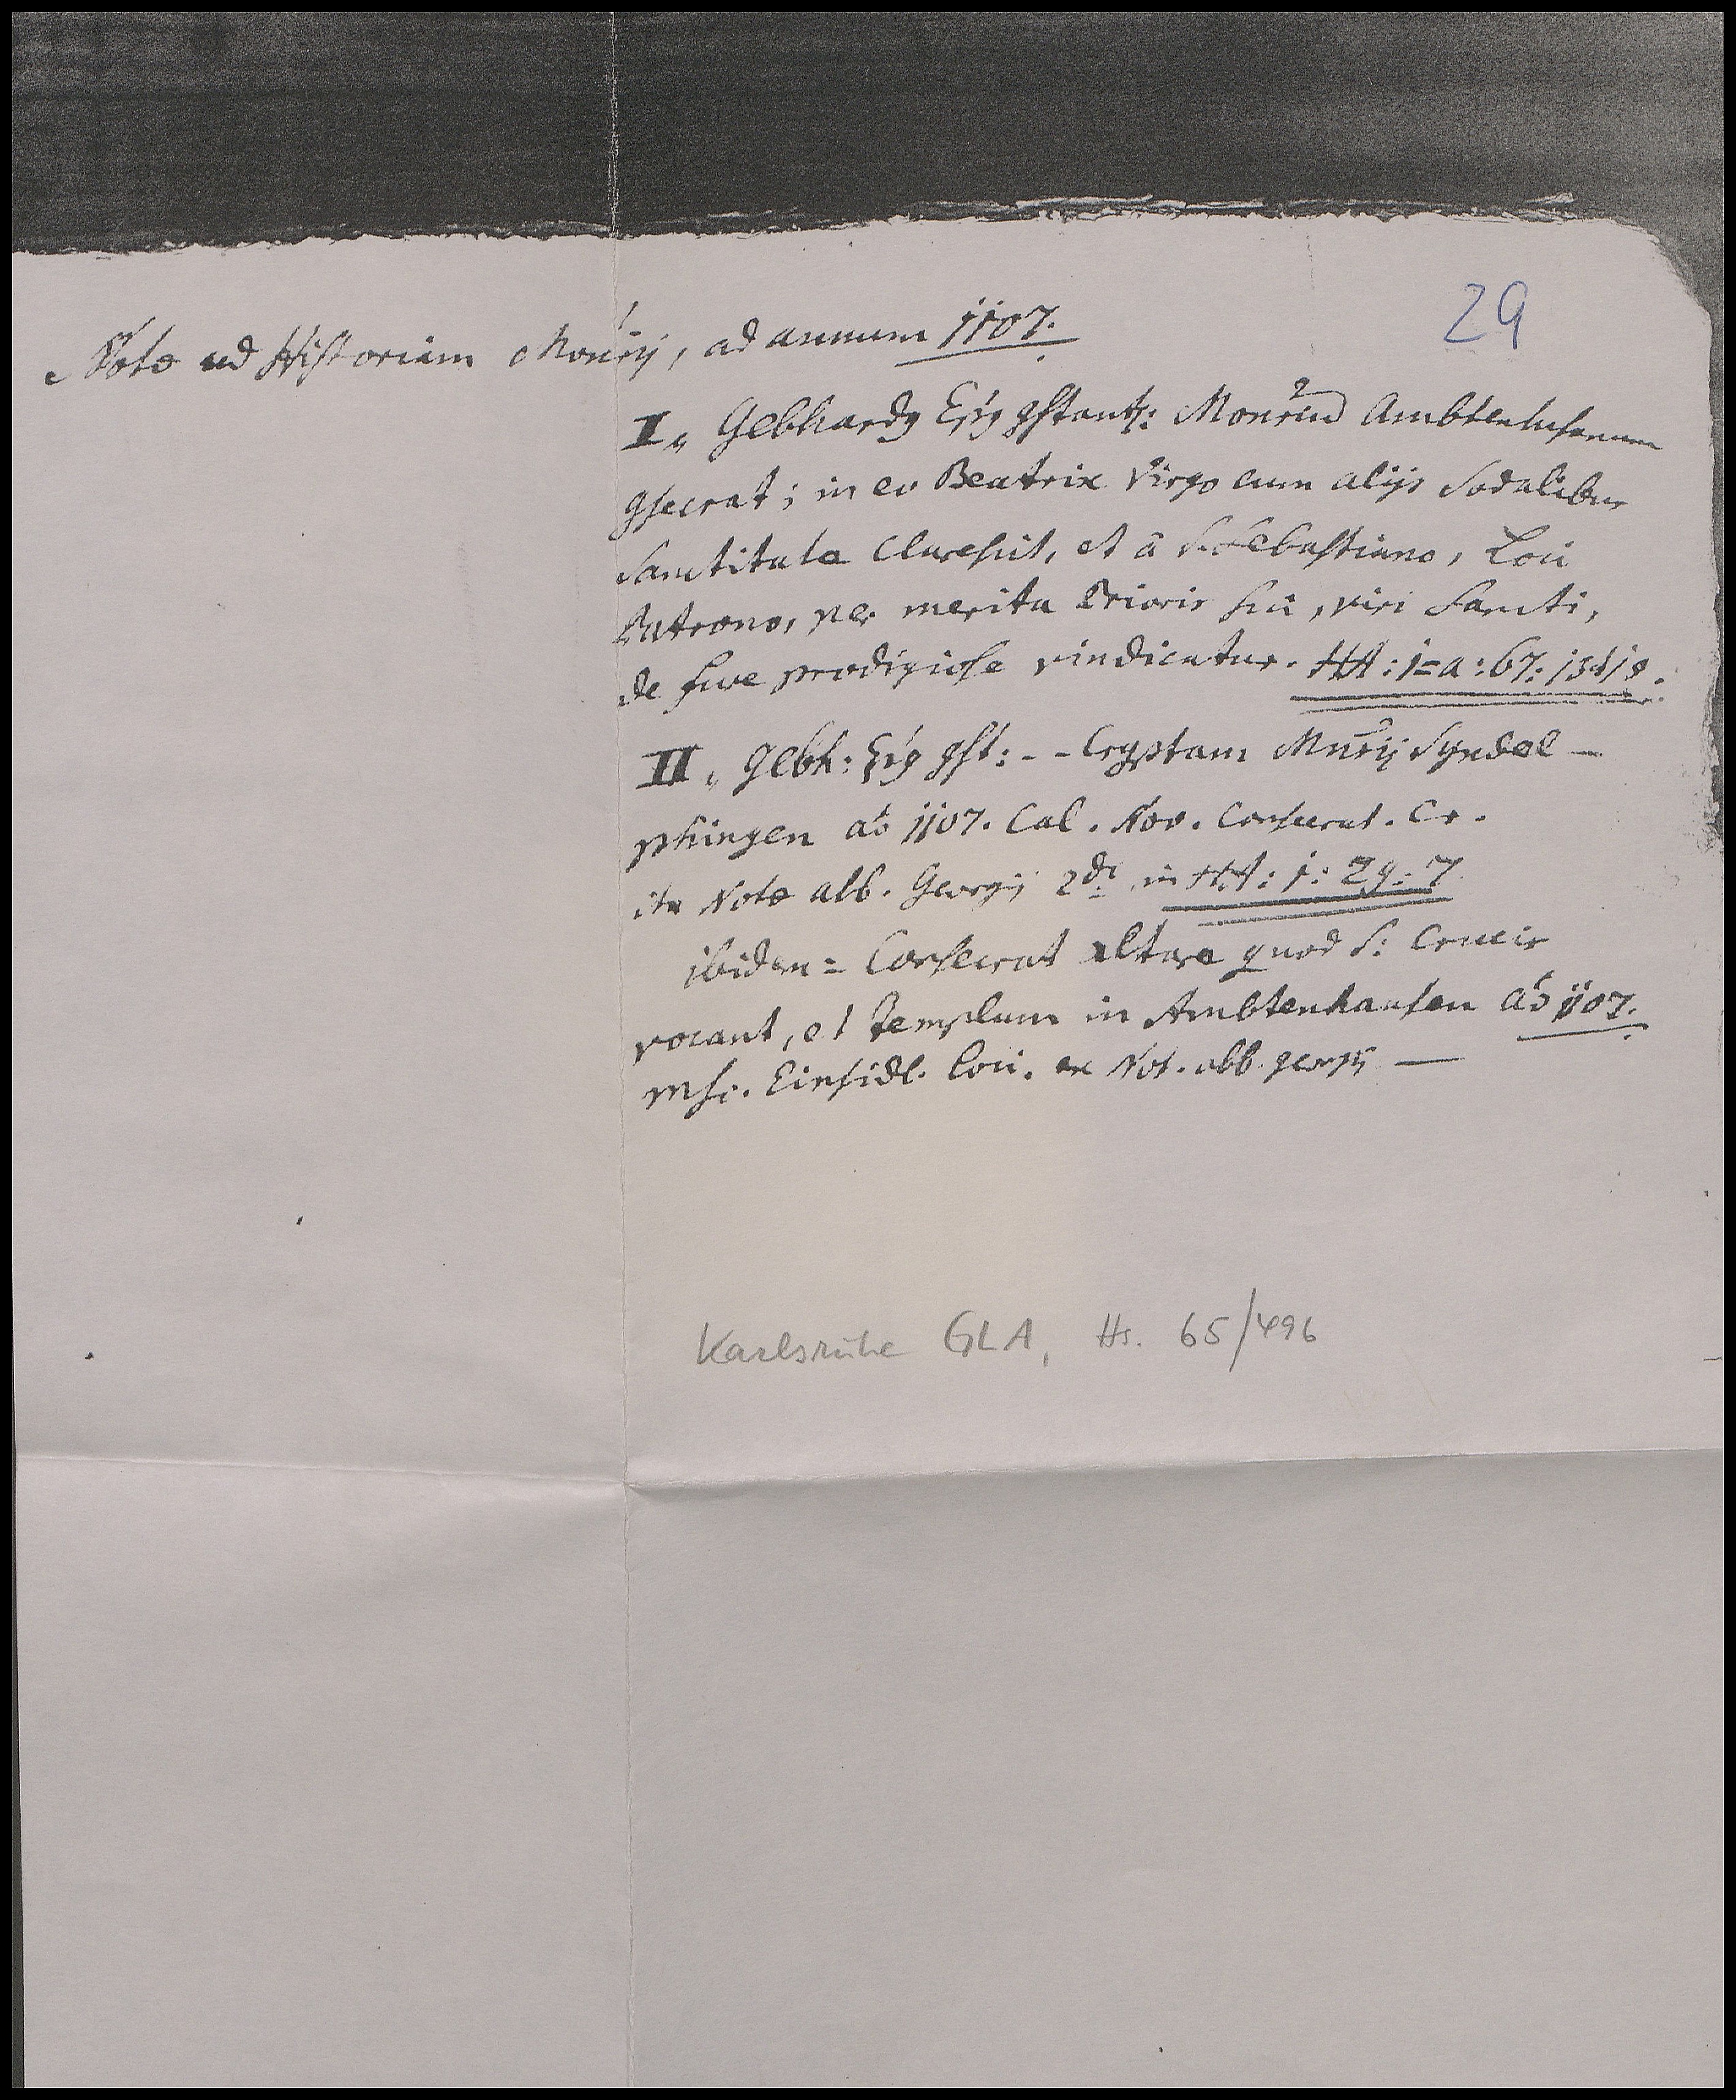 29
Notæ ad Historiam Monrij, ad annum 1107.
I, Gebhardg Epg gstantz: Monrium Ambtenhusanum
gsecrat; in eo Beatrix Virgo cum alijs Sodalibus
Sanctitate claresht, et à S. Sebastiano, Loci
Patrono, per merita Prioris sui, viri Sancti,
de fure prodigiose vindicatur. HA: 1=a: 67:
II, Gebh: Epg gst: - - Cryptam Mnrij Syndel-
phingen aô 1107. Cal. Nov. Consecrat. Cr.
ita Notæ abb. Georgij 2di in HA: 1: 29: 7
ibidem = Consecrat altare quod S: Crucis
vocant, et templum in Ambtenhausen aô 1107.
msc. Einsidl. Loci. ex Not. abb. georgij —
Karlsruhe GLA, Hs. 65/496